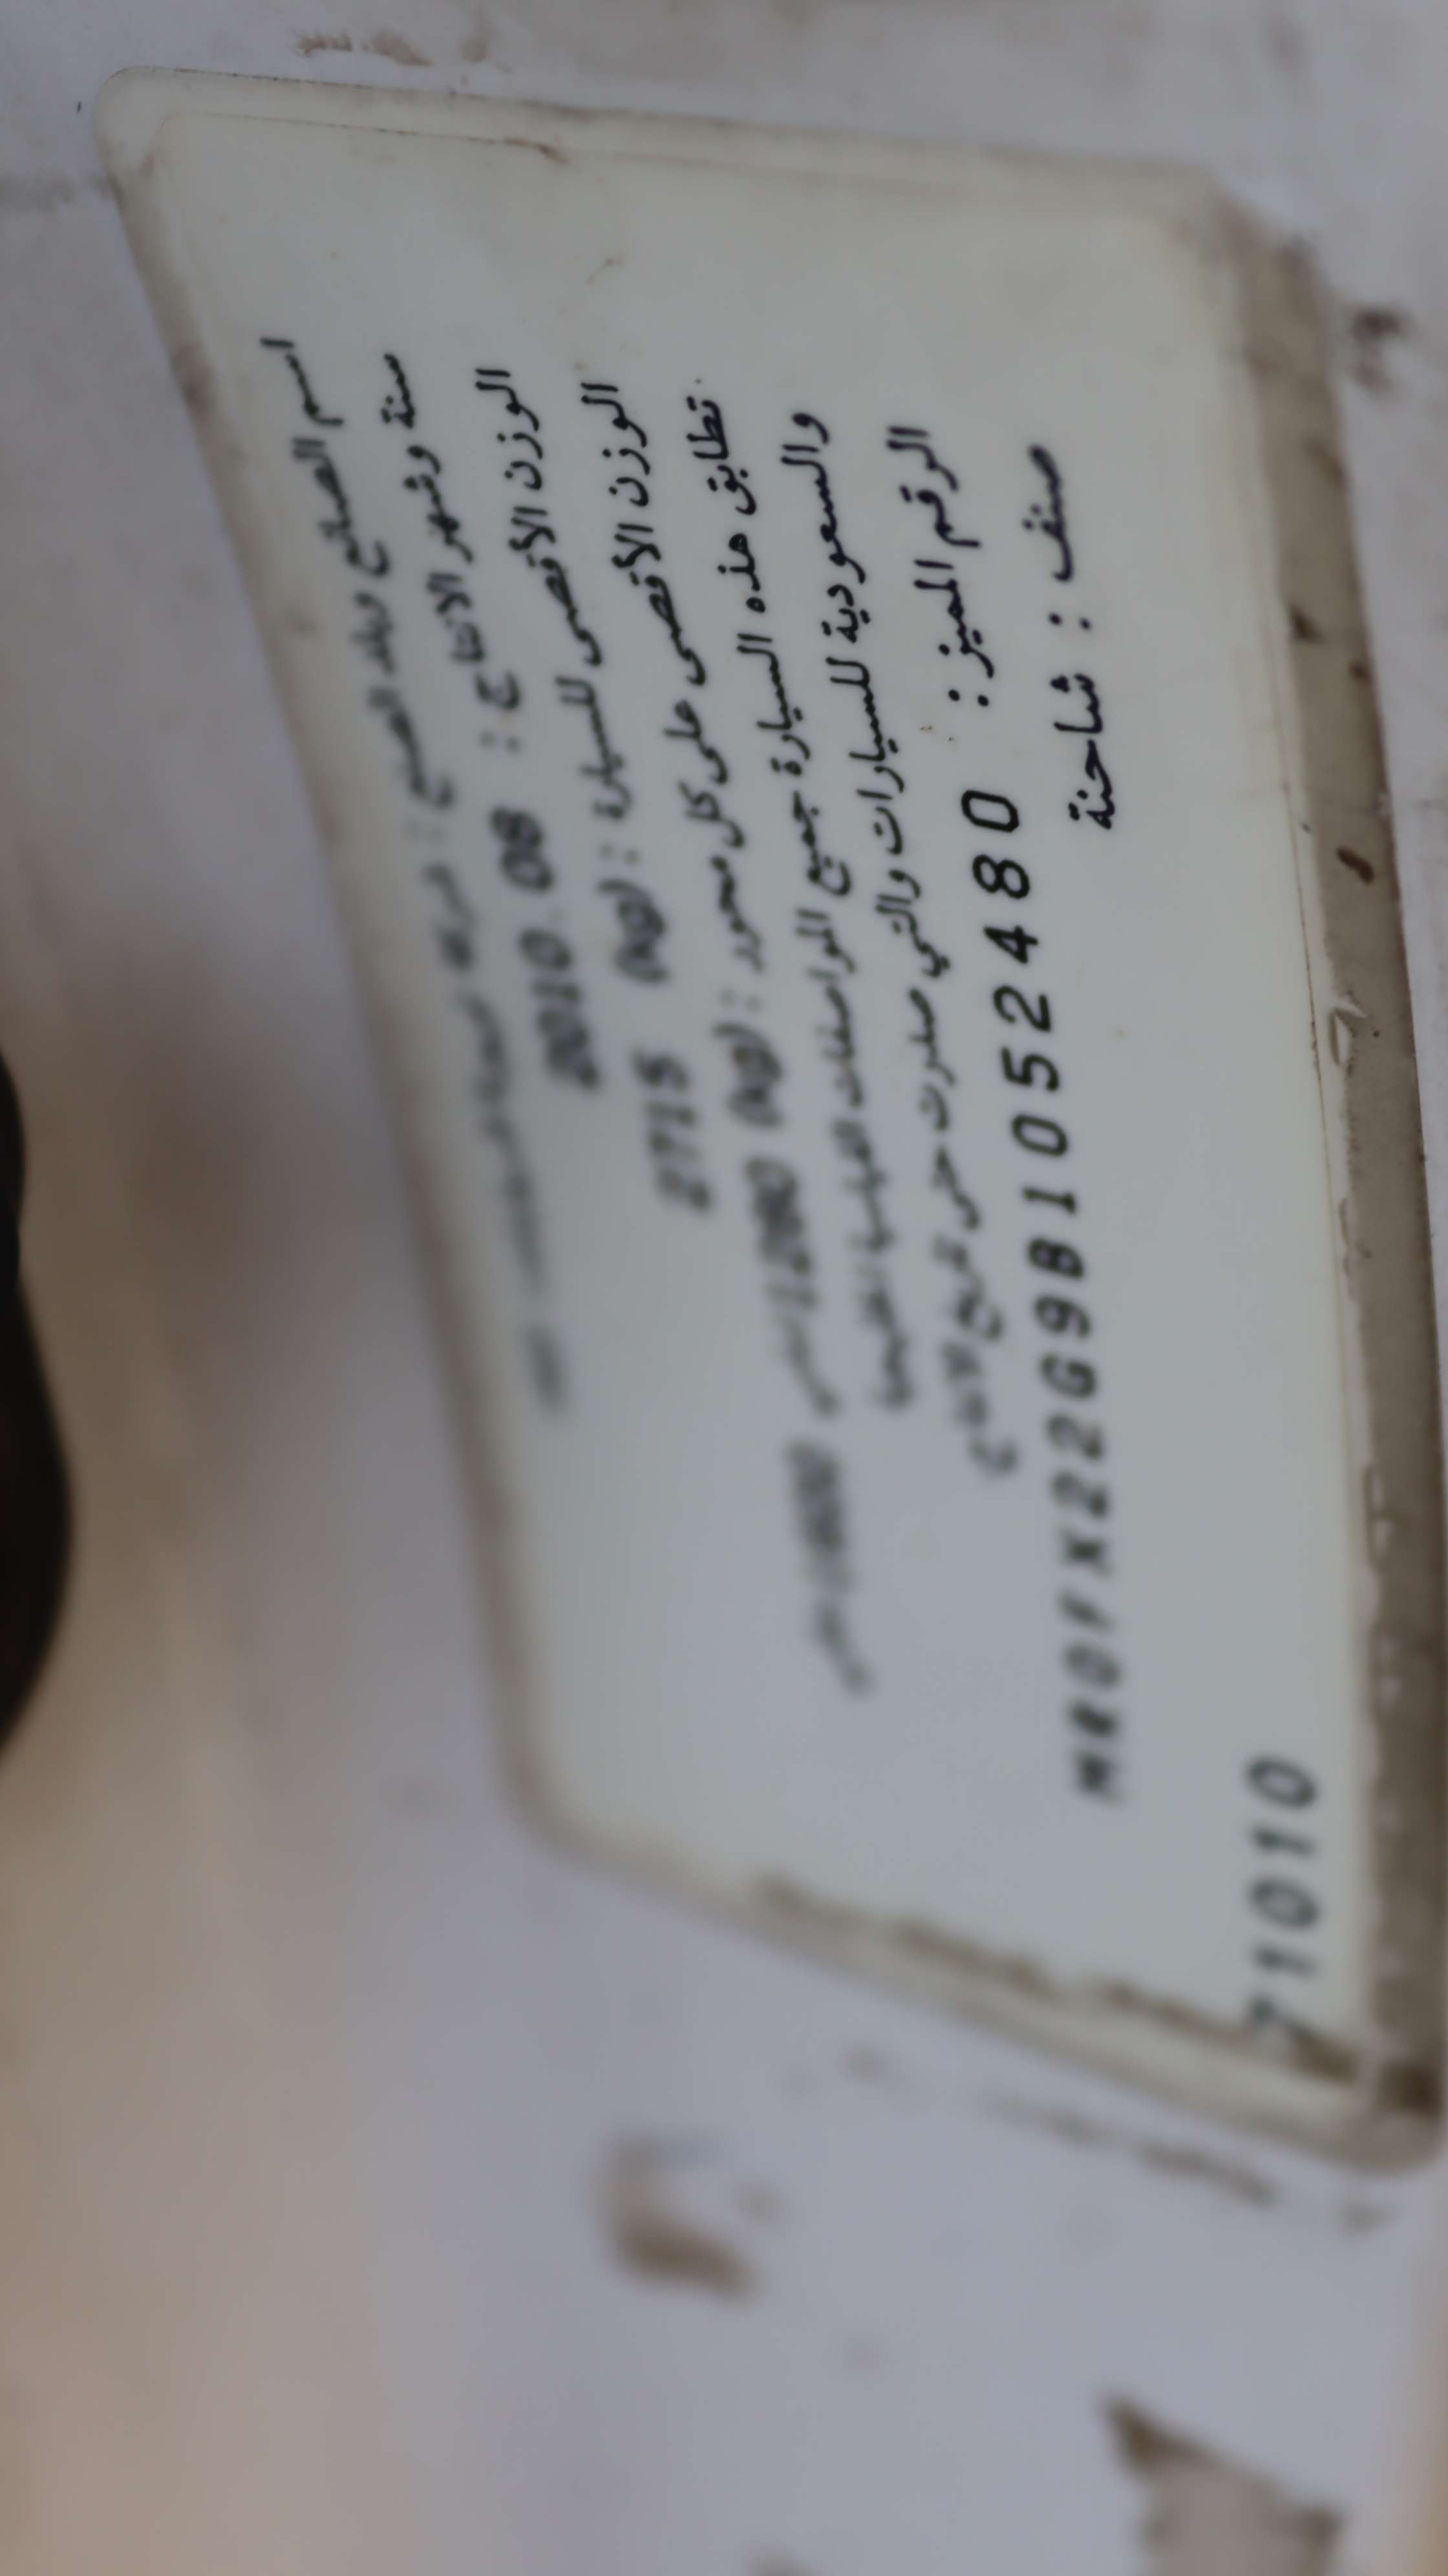 اسم الصانع وبلد الصنع :
سنة وشهر الانتاج : 2010.08
الوزن الأقصى للسيارة : (kg) 2715
الوزن الأقصى على كل محور : (kg) 1280
تطابق هذه السيارة جميع المواصفات القياسية الخليجية
والسعودية للسيارات والتي صدرت حتى تاريخ الانتاج
الرقم المميز : MR0FX22G9B1052480
صنف : شاحنة
71010